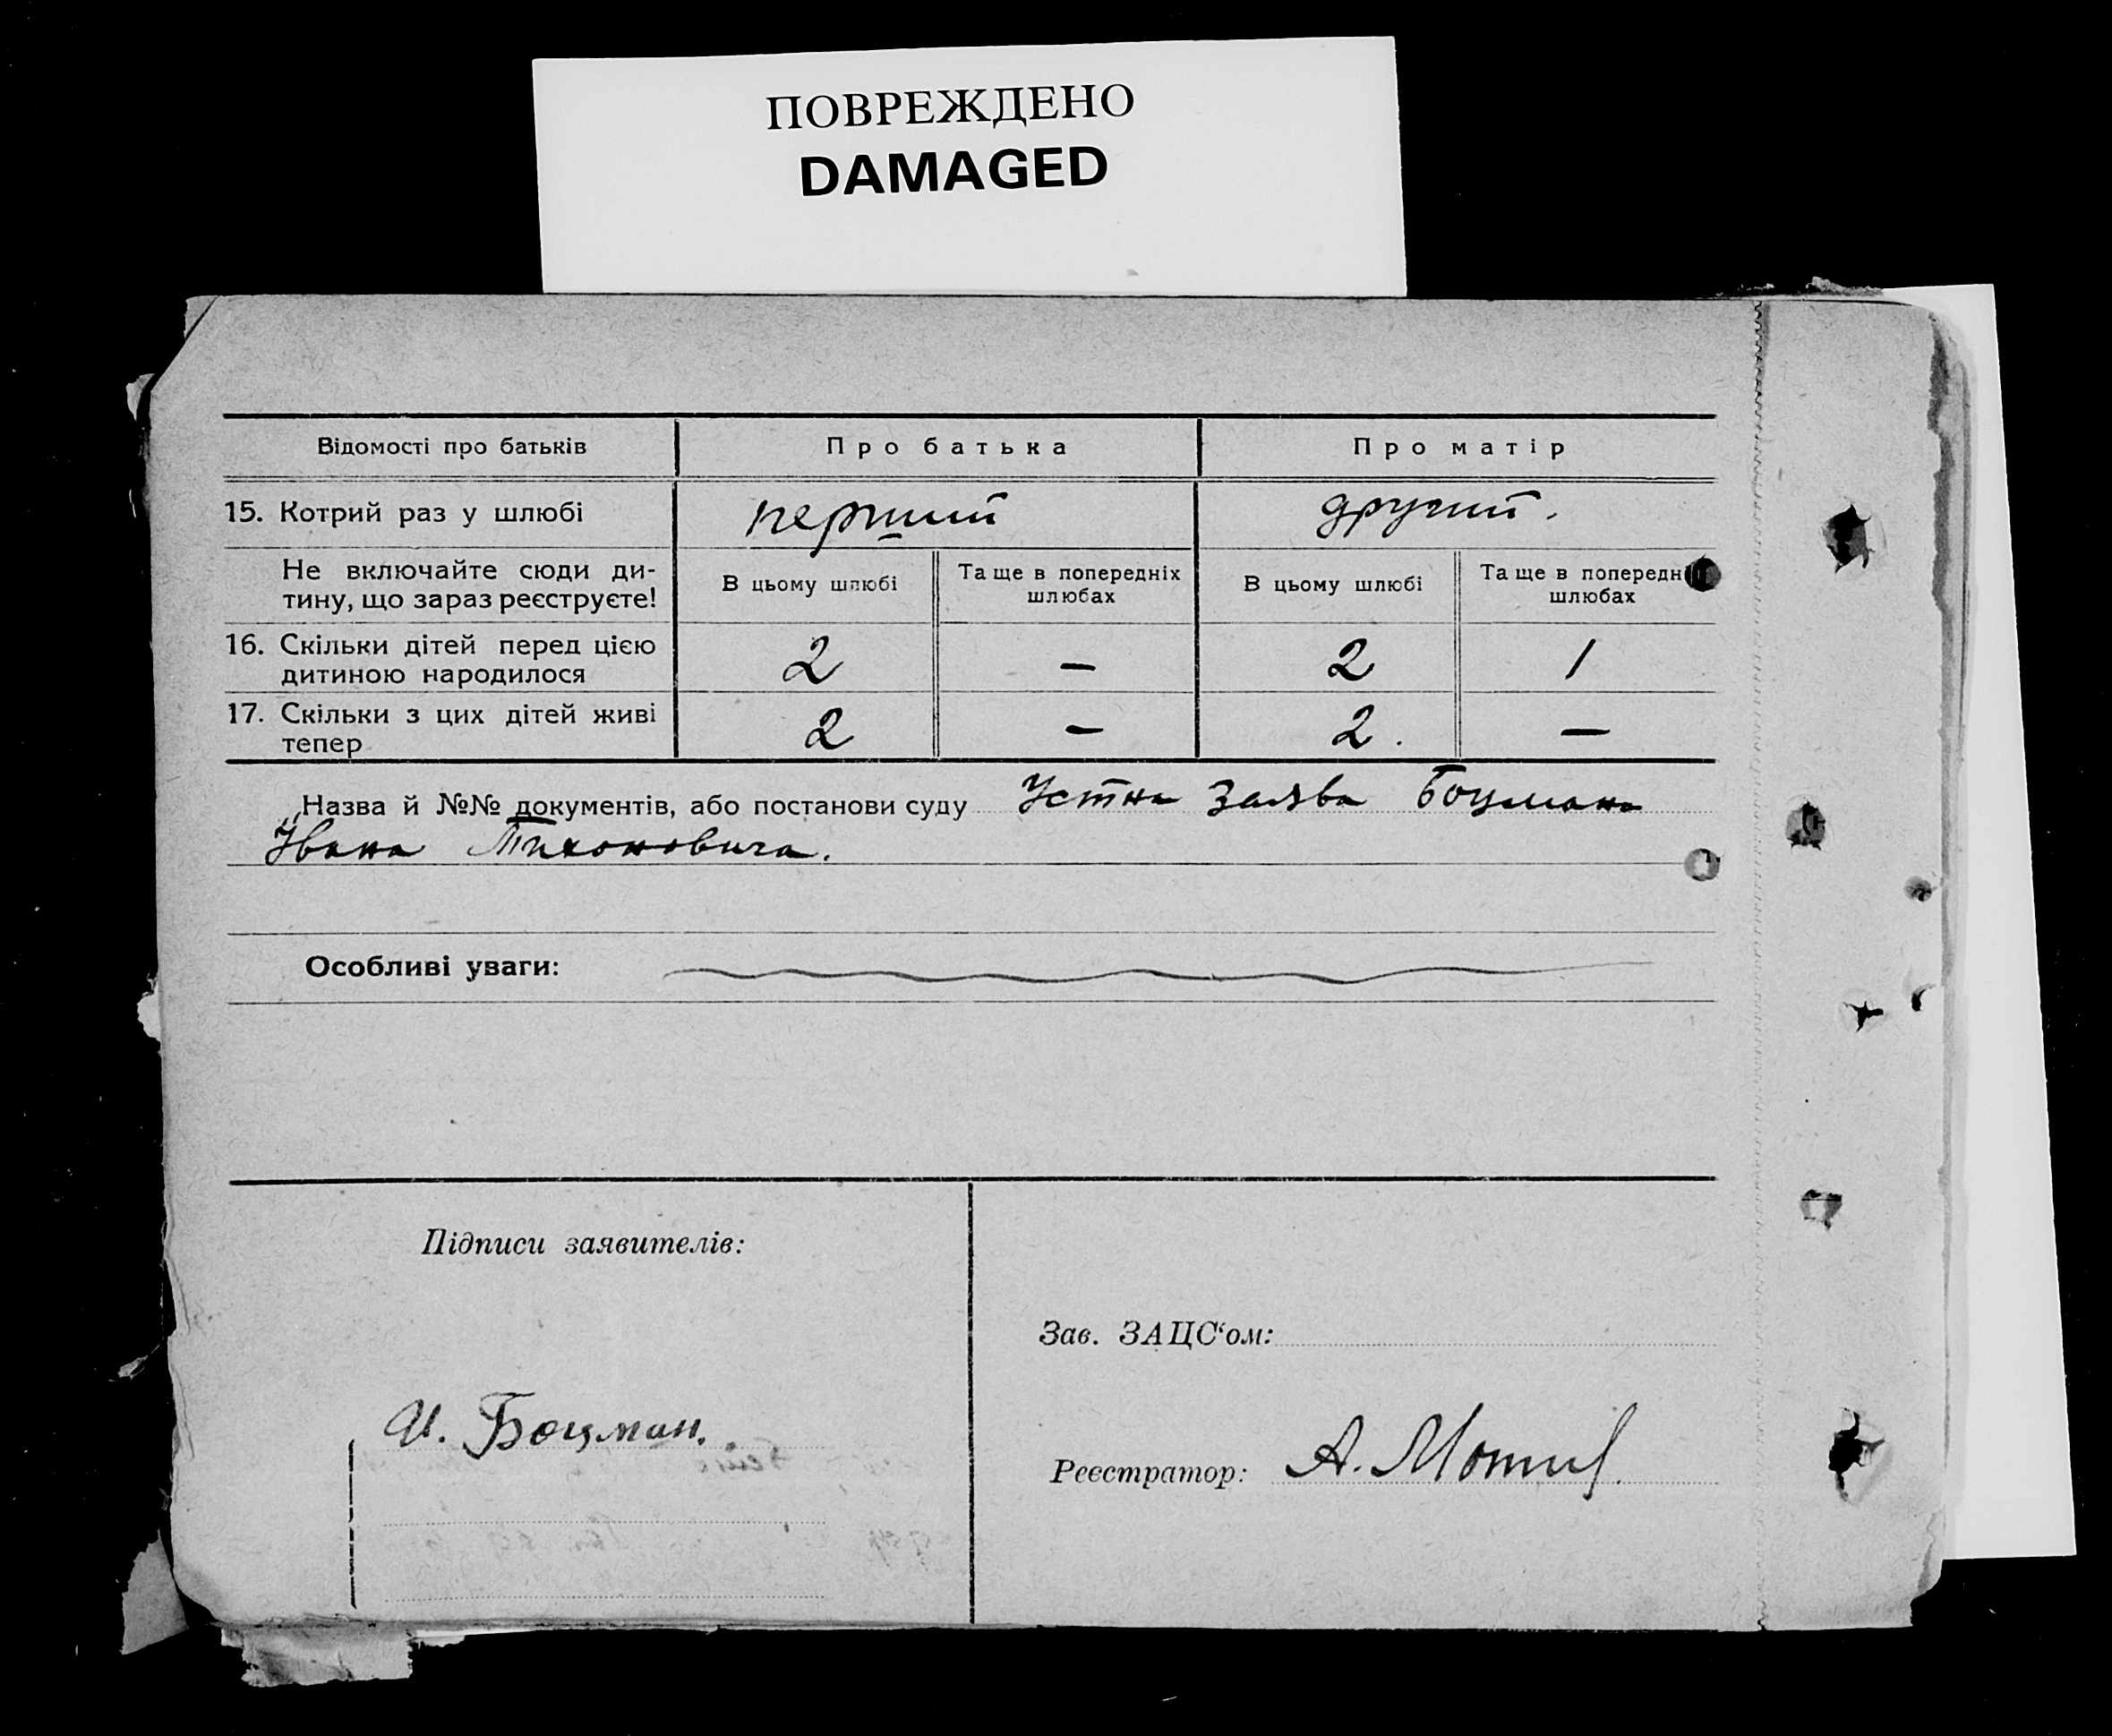 ПОВРЕЖДЕНО
DAMAGED
Відомості про батьків
Про батька
Про матір
15. Котрий раз у шлюбі
перший
другий.
Не включайте сюди ди-
тину, що зараз реєструєте!
В цьому шлюбі
Та ще в попередніх
шлюбах
В цьому шлюбі
Та ще в попередн
шлюбах
16. Скільки дітей перед цією
дитиною народилося
2
—
2
1
17. Скільки з цих дітей живі
тепер
2
—
2.
—
Назва й №№ документів, або постанови суду Устна заява Боцмана
Івана Тихоновича.
Особливі уваги:
Підписи заявителів:
Зав. ЗАЦС‘ом:
И. Боцман.
Реєстратор: А.